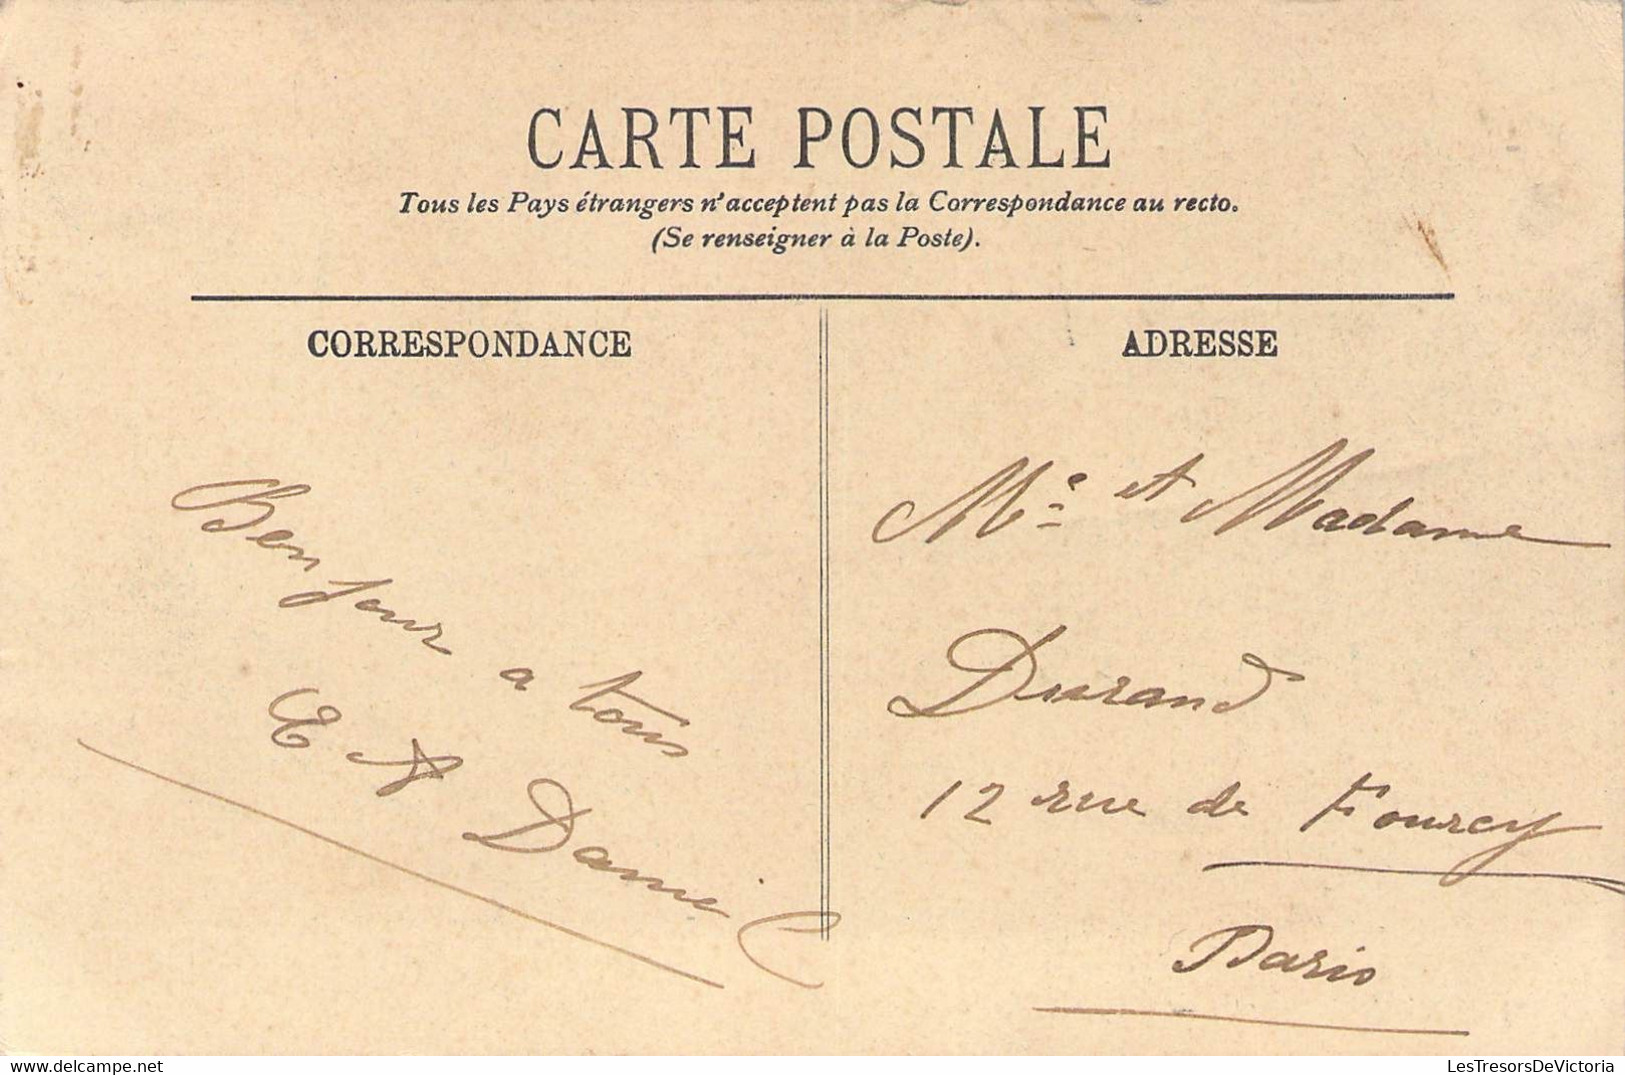 CARTE POSTALE
Tous les Pays étrangers n'acceptent pas la Correspondance au recto.
(Se renseigner à la Poste).
CORRESPONDANCE
Bonjour a tous
E A Dami C
ADRESSE
Mr et Madame
Durand
12 rue de Fourcy
Paris
LesTresorsDeVictoria